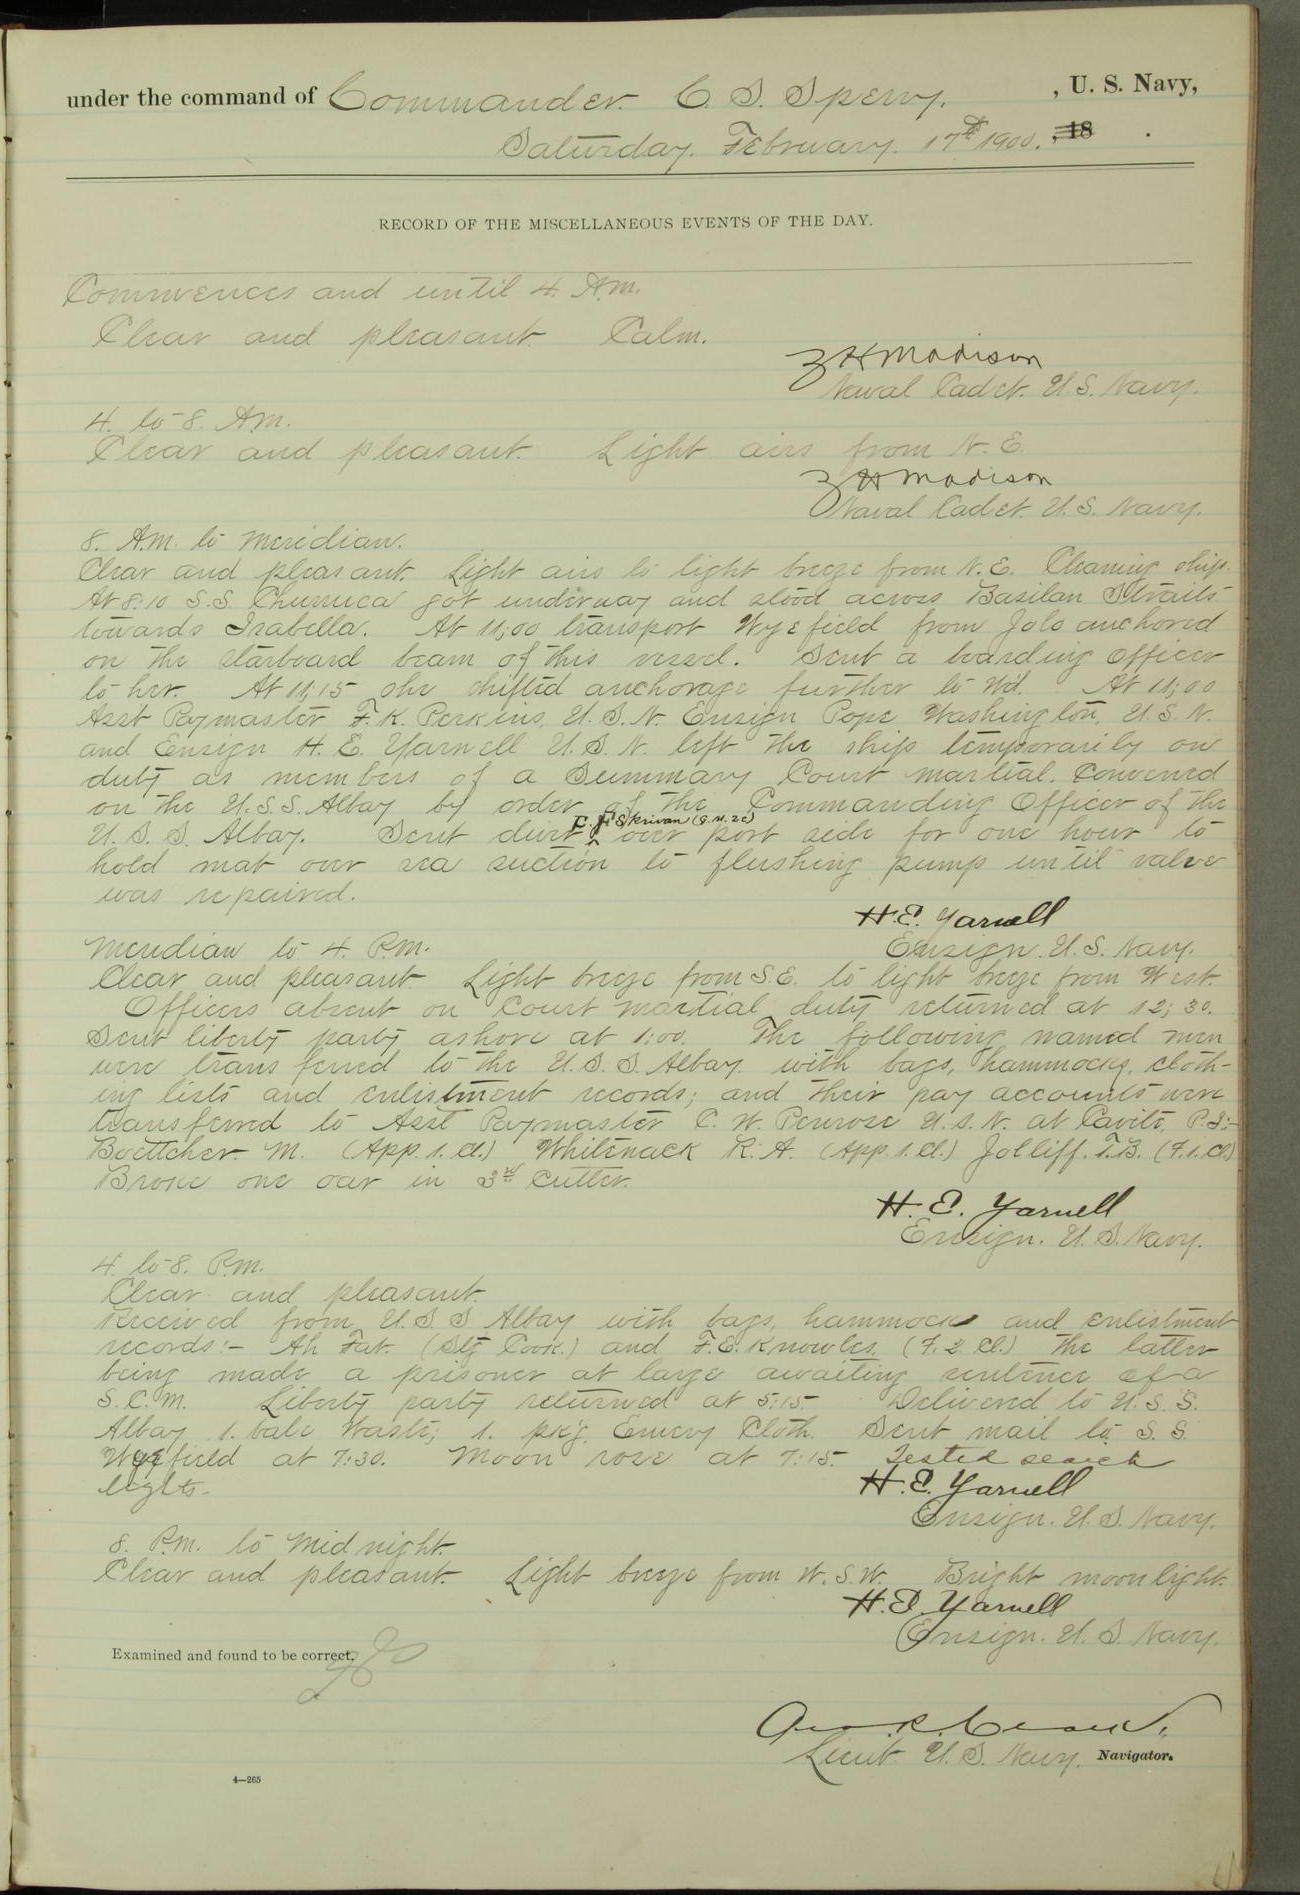 under the command of Commander. C. S. Sperry. , U. S. Navy,
Saturday. February. 17th 1900. , 18 .
RECORD OF THE MISCELLANEOUS EVENTS OF THE DAY.
Commences and until 4. A.M.
Clear and pleasant. Calm.
Z H Madison
Naval Cadet. U.S. Navy.
4. to 8. A.M.
Clear and pleasant. Light airs from N.E.
Z H Madison
Naval Cadet. U.S. Navy.
8. A.M. to Meridian.
Clear and pleasant. Light airs to light breeze from N.E. Cleaning ship.
At 8:10 S.S. Churruca got underway and stood across Basilan Straits
towards Isabella. At 11;00 transport Wyefield from Jolo anchored
on the starboard beam of this vessel. Sent a boarding officer
to her. At 11;15 she shifted anchorage further to Wd. At 11;00
Asst Paymaster F. K. Perkins, U.S.N. Ensign Pope Washington, U.S.N.
and Ensign H. E. Yarnell U.S.N. left the ship temporarily on
duty as members of a Summary Court martial. Convened
on the U.S.S. Albay by order of the Commanding Officer of the
E. F. Skrivan (G.M. 2c)
U.S.S. Albay. Sent diver ^ over port side for one hour to
hold mat over sea suction to flushing pump until valve
was repaired.
H. E. Yarnell
Meridian to 4. P.M. Ensign. U.S. Navy.
Clear and pleasant. Light breeze from S.E. to light breeze from West.
Officers absent on Court martial duty returned at 12;30.
Sent liberty party ashore at 1:00. The following named men
were transferred to the U.S.S. Albay with bags, hammocks, cloth-
ing lists and enlistment records; and their pay accounts were
transferred to Asst Paymaster C. W. Penrose U.S.N. at Cavite, P.I:-
Boettcher. M. (App. 1. cl.) Whitenack R. A. (App. 1. cl.) Jolliff. T.B. (F. 1. Cl)
Broke one oar in 3rd Cutter.
H. E. Yarnell
Ensign. U.S. Navy.
4. to 8. P.M.
Clear and pleasant.
Received from U.S.S Albay with bags, hammocks and enlistment
records:- Ah Fat. (Stg Cook.) and F. E. Knowles. (F. 2. Cl.) the latter
being made a prisoner at large awaiting sentence of a
S.C.M. Liberty party returned at 5:15. Delivered to U.S.S.
Albay 1. bale Waste; 1. pk'g. Emery Cloth. Sent mail to S.S.
Wyefield at 7:30. Moon rose at 7:15. Tested search
lights.
H. E. Yarnell
Ensign. U.S. Navy.
8. P.M. to Midnight.
Clear and pleasant. Light breeze from W.S.W. Bright moonlight.
H. E. Yarnell
Ensign. U.S. Navy.
Examined and found to be correct.
Lieut. U.S. Navy. Navigator.
4—265